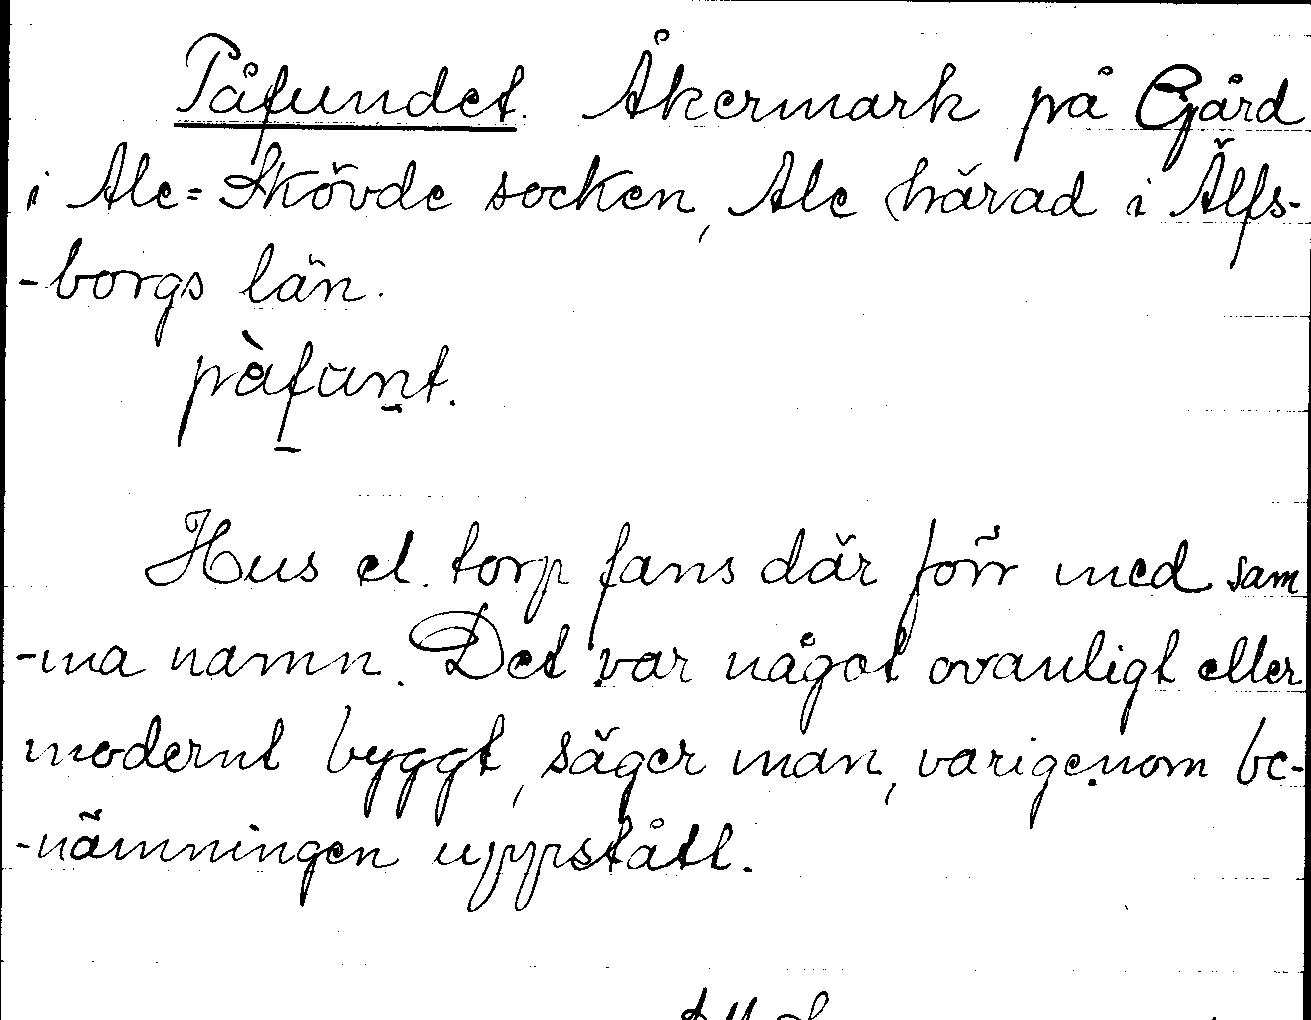 Påfundet. Åkermark på Gård
i Ale=Skövde socken, Ale härad i Älfs-
-borgs län.
pàfunt.
Hus el. torp fans där förr med sam
-ma namn. Det var något ovanligt eller
modernt byggt, säger man, varigenom be-
-nämningen uppstått.